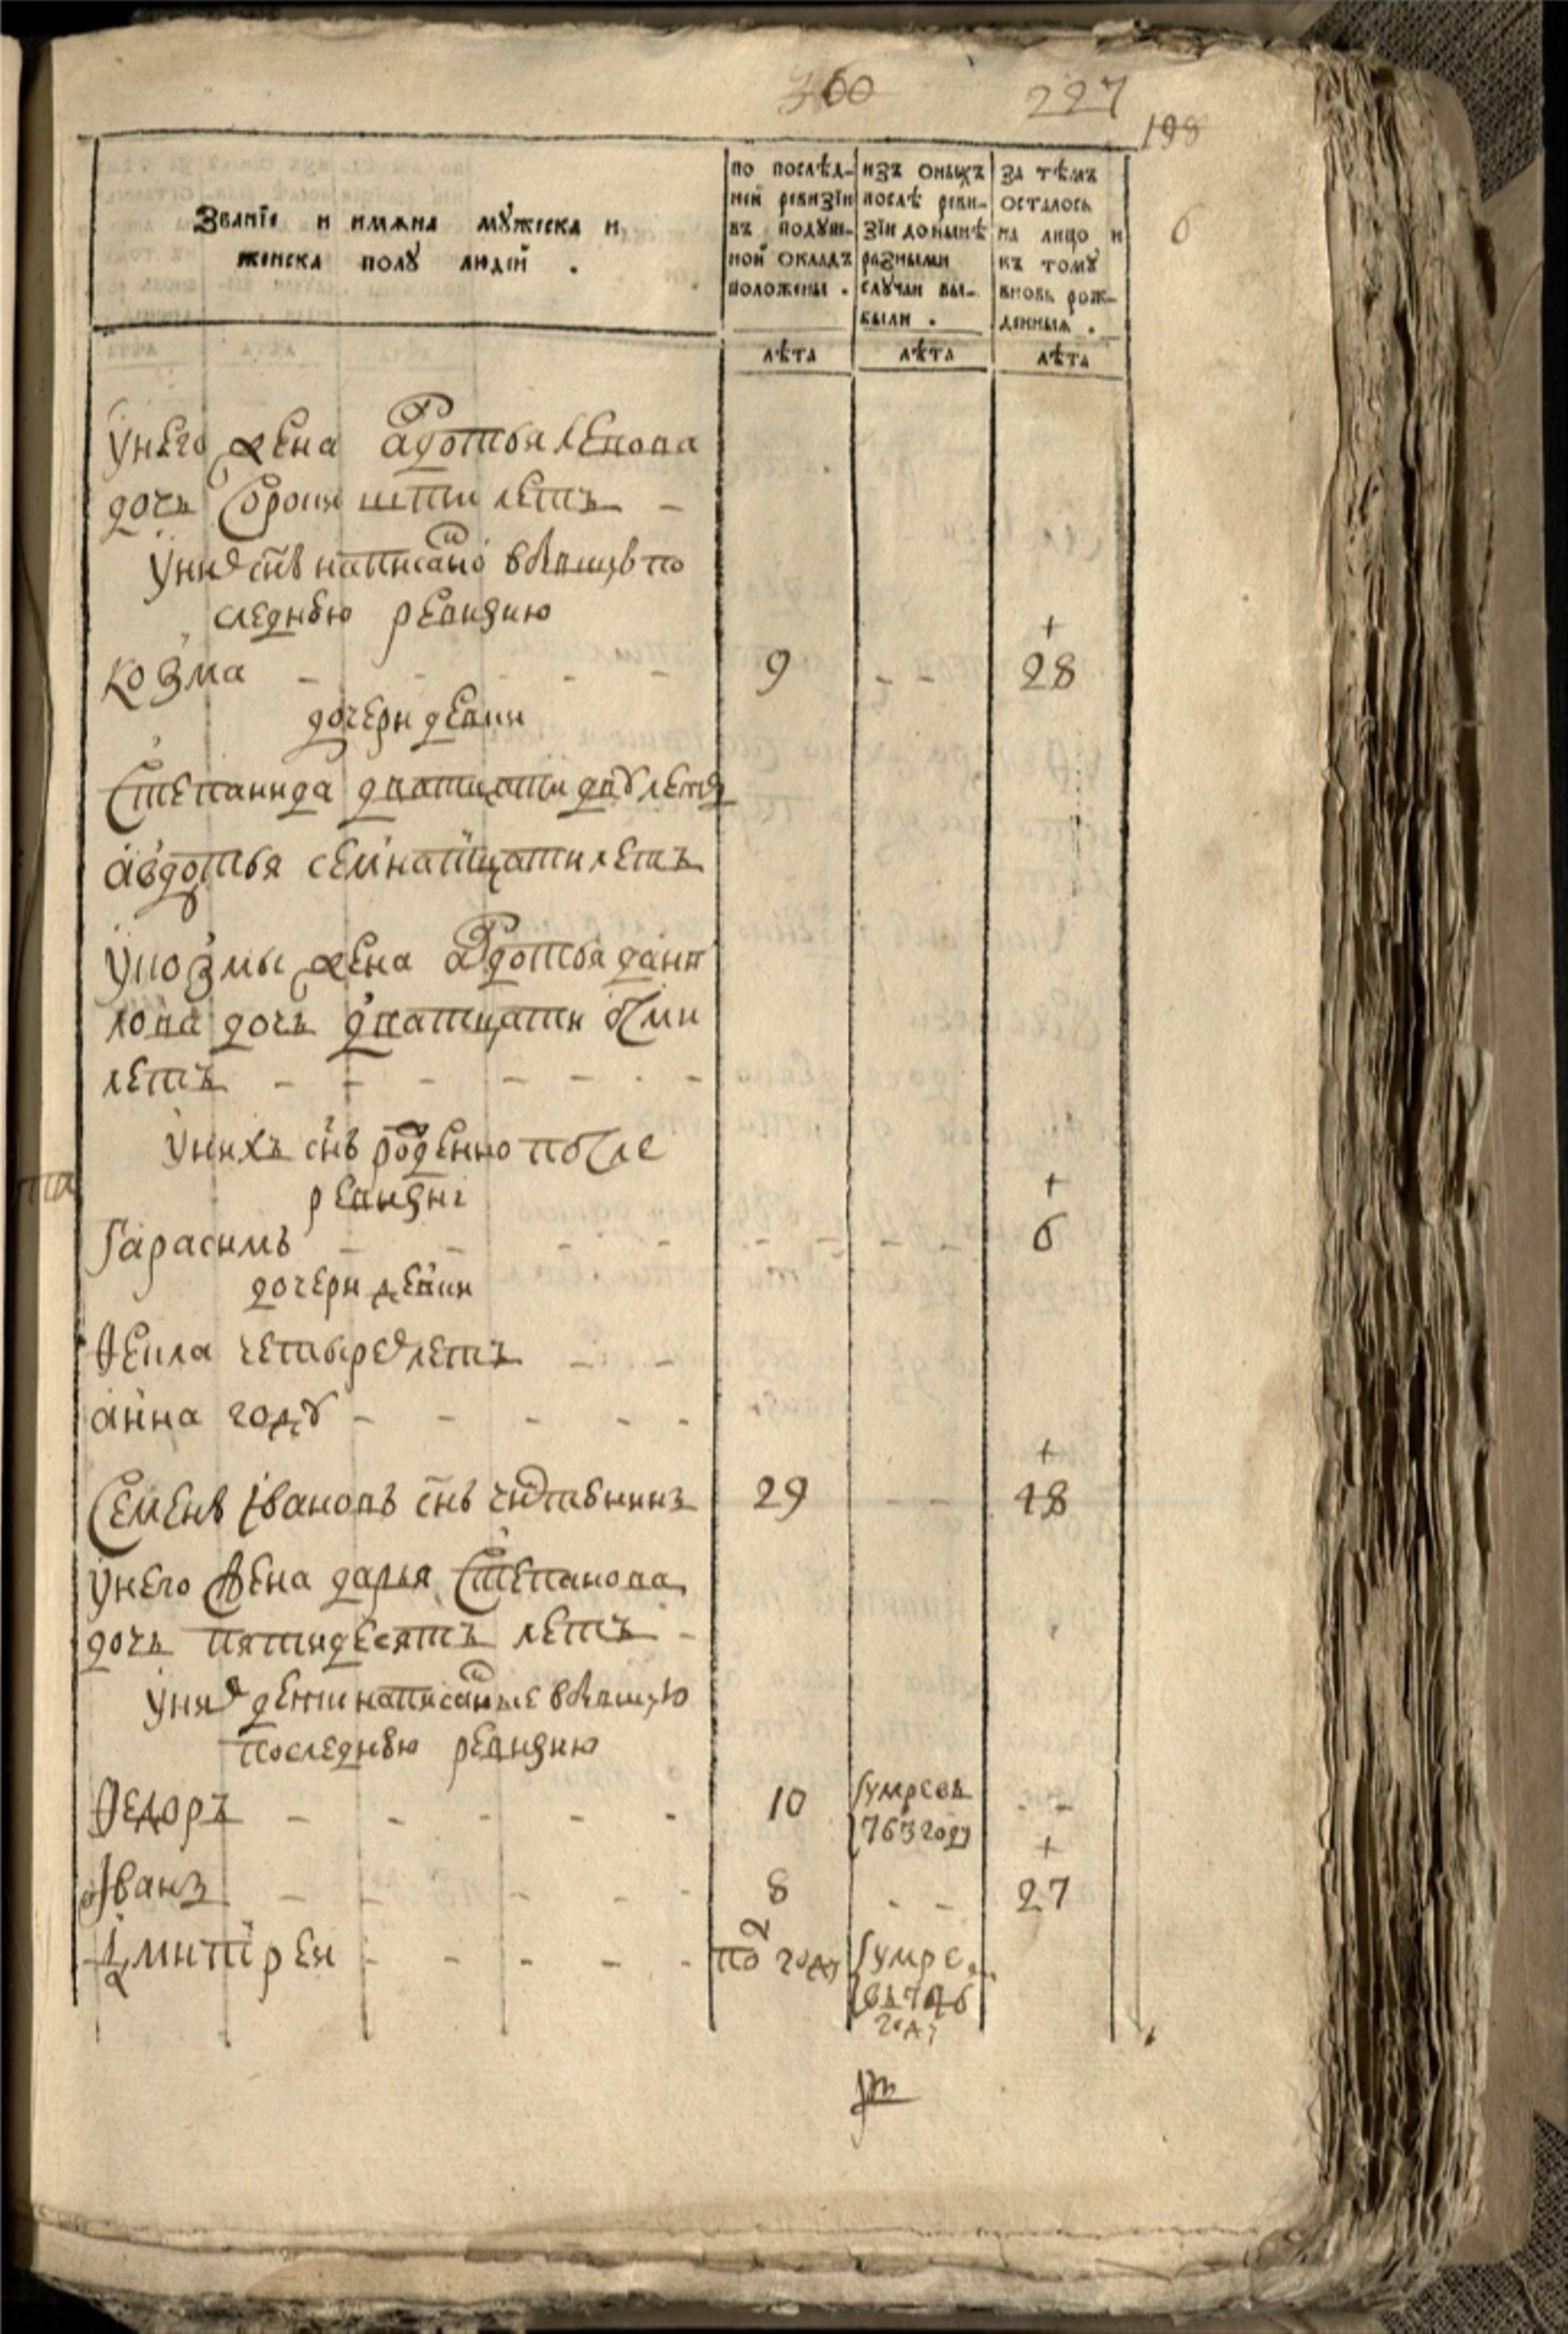 360 227
198
Званїе и имяна мꙋжеска и
женска полꙋ людей .
по послѣд-
ней ревизїи
въ подꙋш-
ной окладъ
положены .
изъ оныхъ
послѣ реви-
зїи до нынѣ
разными
случаи вы-
были .
за тѣмъ
осталось
на лицо и
къ томꙋ
вновь рож-
денныя .
6
лѣта лѣта лѣта
унего жена авдотья
дочь сорока шти летъ -
уних снъ написано в бывшую по
следнюю ревизию
+
козма - - - - - 9 - - 28
дочери девки
степанида дватцати двꙋ летъ
авдотья семнатцати летъ
укозмы жена авдотья дани
лова дочь дватцати осми
летъ - - - - - - -
унихъ снъ рожденно после
ревизиі
+
гарасимъ - - - - - - - - - 6
дочери девки
Ѳекла четырех летъ - -
анна годꙋ - - - - -
+
семенъ івановъ снъ 29 - - 48
унего жена дарья степанова
дочь пятидесятъ летъ -
уних дети написанные в бывшую
последнюю ревизию
Ѳедоръ - - - - - 10 умре въ - -
763 году
+
іванъ - - - - - 8 - - 27
дмитреи - - - - - 2
по году умре
въ 746
году